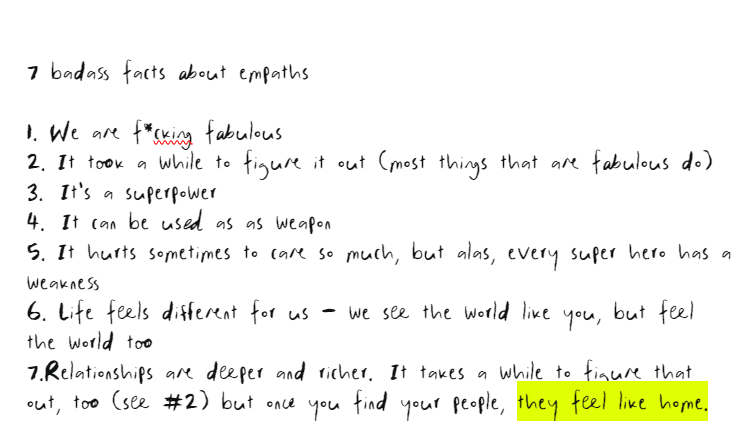 7 badass facts about empaths
1. We are f*cking fabulous
2. It took a while to figure it out (most things that are fabulous do)
3. It's a superpower
4. It can be used as as weapon
5. It hurts sometimes to care so much, but alas, every super hero has a
weakness
6. Life feels different for us - we see the world like you, but feel
the world too
7.Relationships are deeper and richer. It takes a while to figure that
out, too (see #2) but once you find your people, they feel like home.